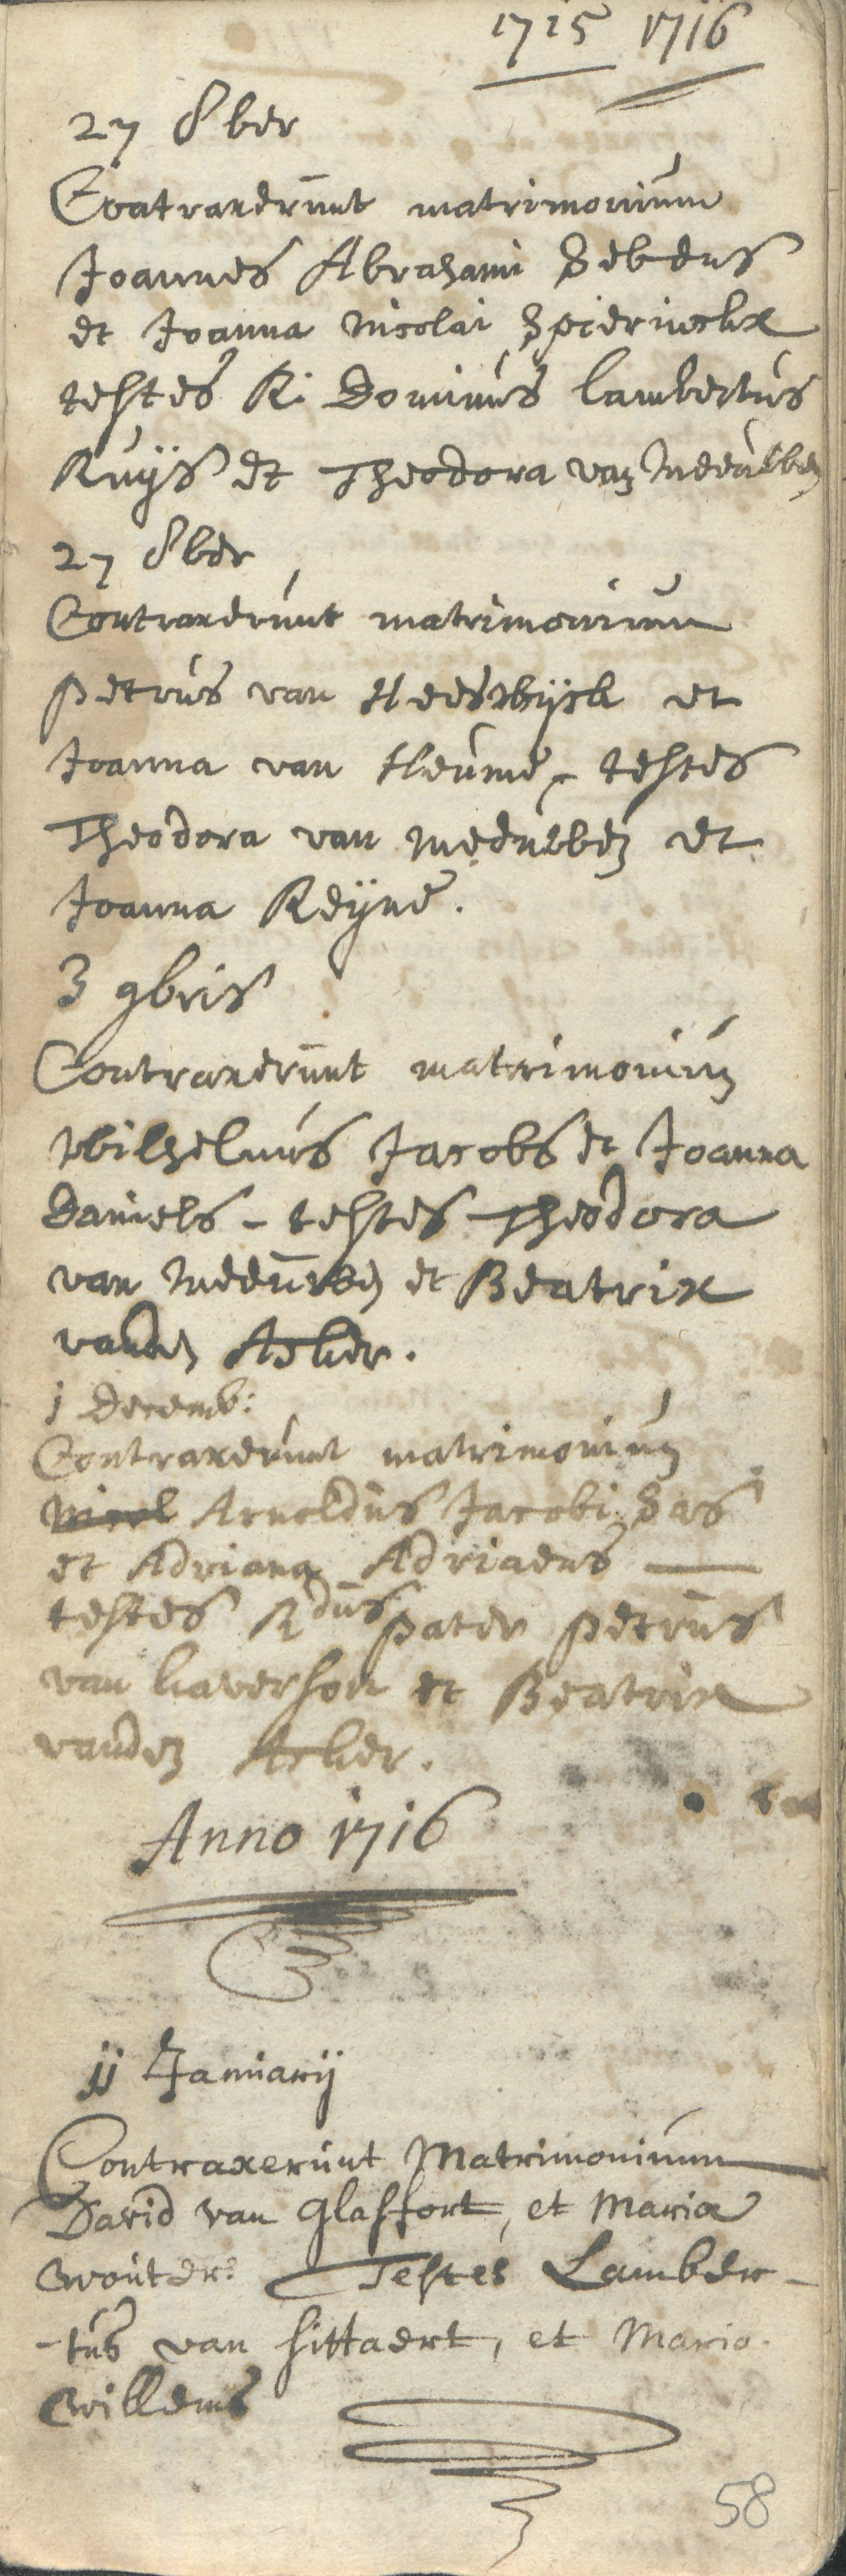 1715 1716
27 8ber
Contraxerunt matrimonium
Joannes Abrahami Sebens
et Joanna Nicolai Spierinckx
testes R. Dominus Lambertus
Kuijs et Theodora van
27 8ber
Contraxerunt matrimonium
Petrus van Heeswijck et
Joanna van Heume, testes
Theodora van et
Joanna Keijne.
3 9bris
Contraxerunt matrimonium
Wilhelmus Jacobs et Joanna
Daniels - testes Theodora
van et Beatrix
vanden Acker.
1 Decemb:
Contraxerunt matrimonium
Arnoldus Jacobi Sas
et Adriana Adriaens
testes Rdus Pater Petrus
van haverson et Beatrix
vanden Acker.
Anno 1716
11 Januarij
Contraxerunt Matrimonium
David van Glasfort, et Maria
Wouters Testes Lamber-
-tus van Sittaert, et Maria
Willems
58